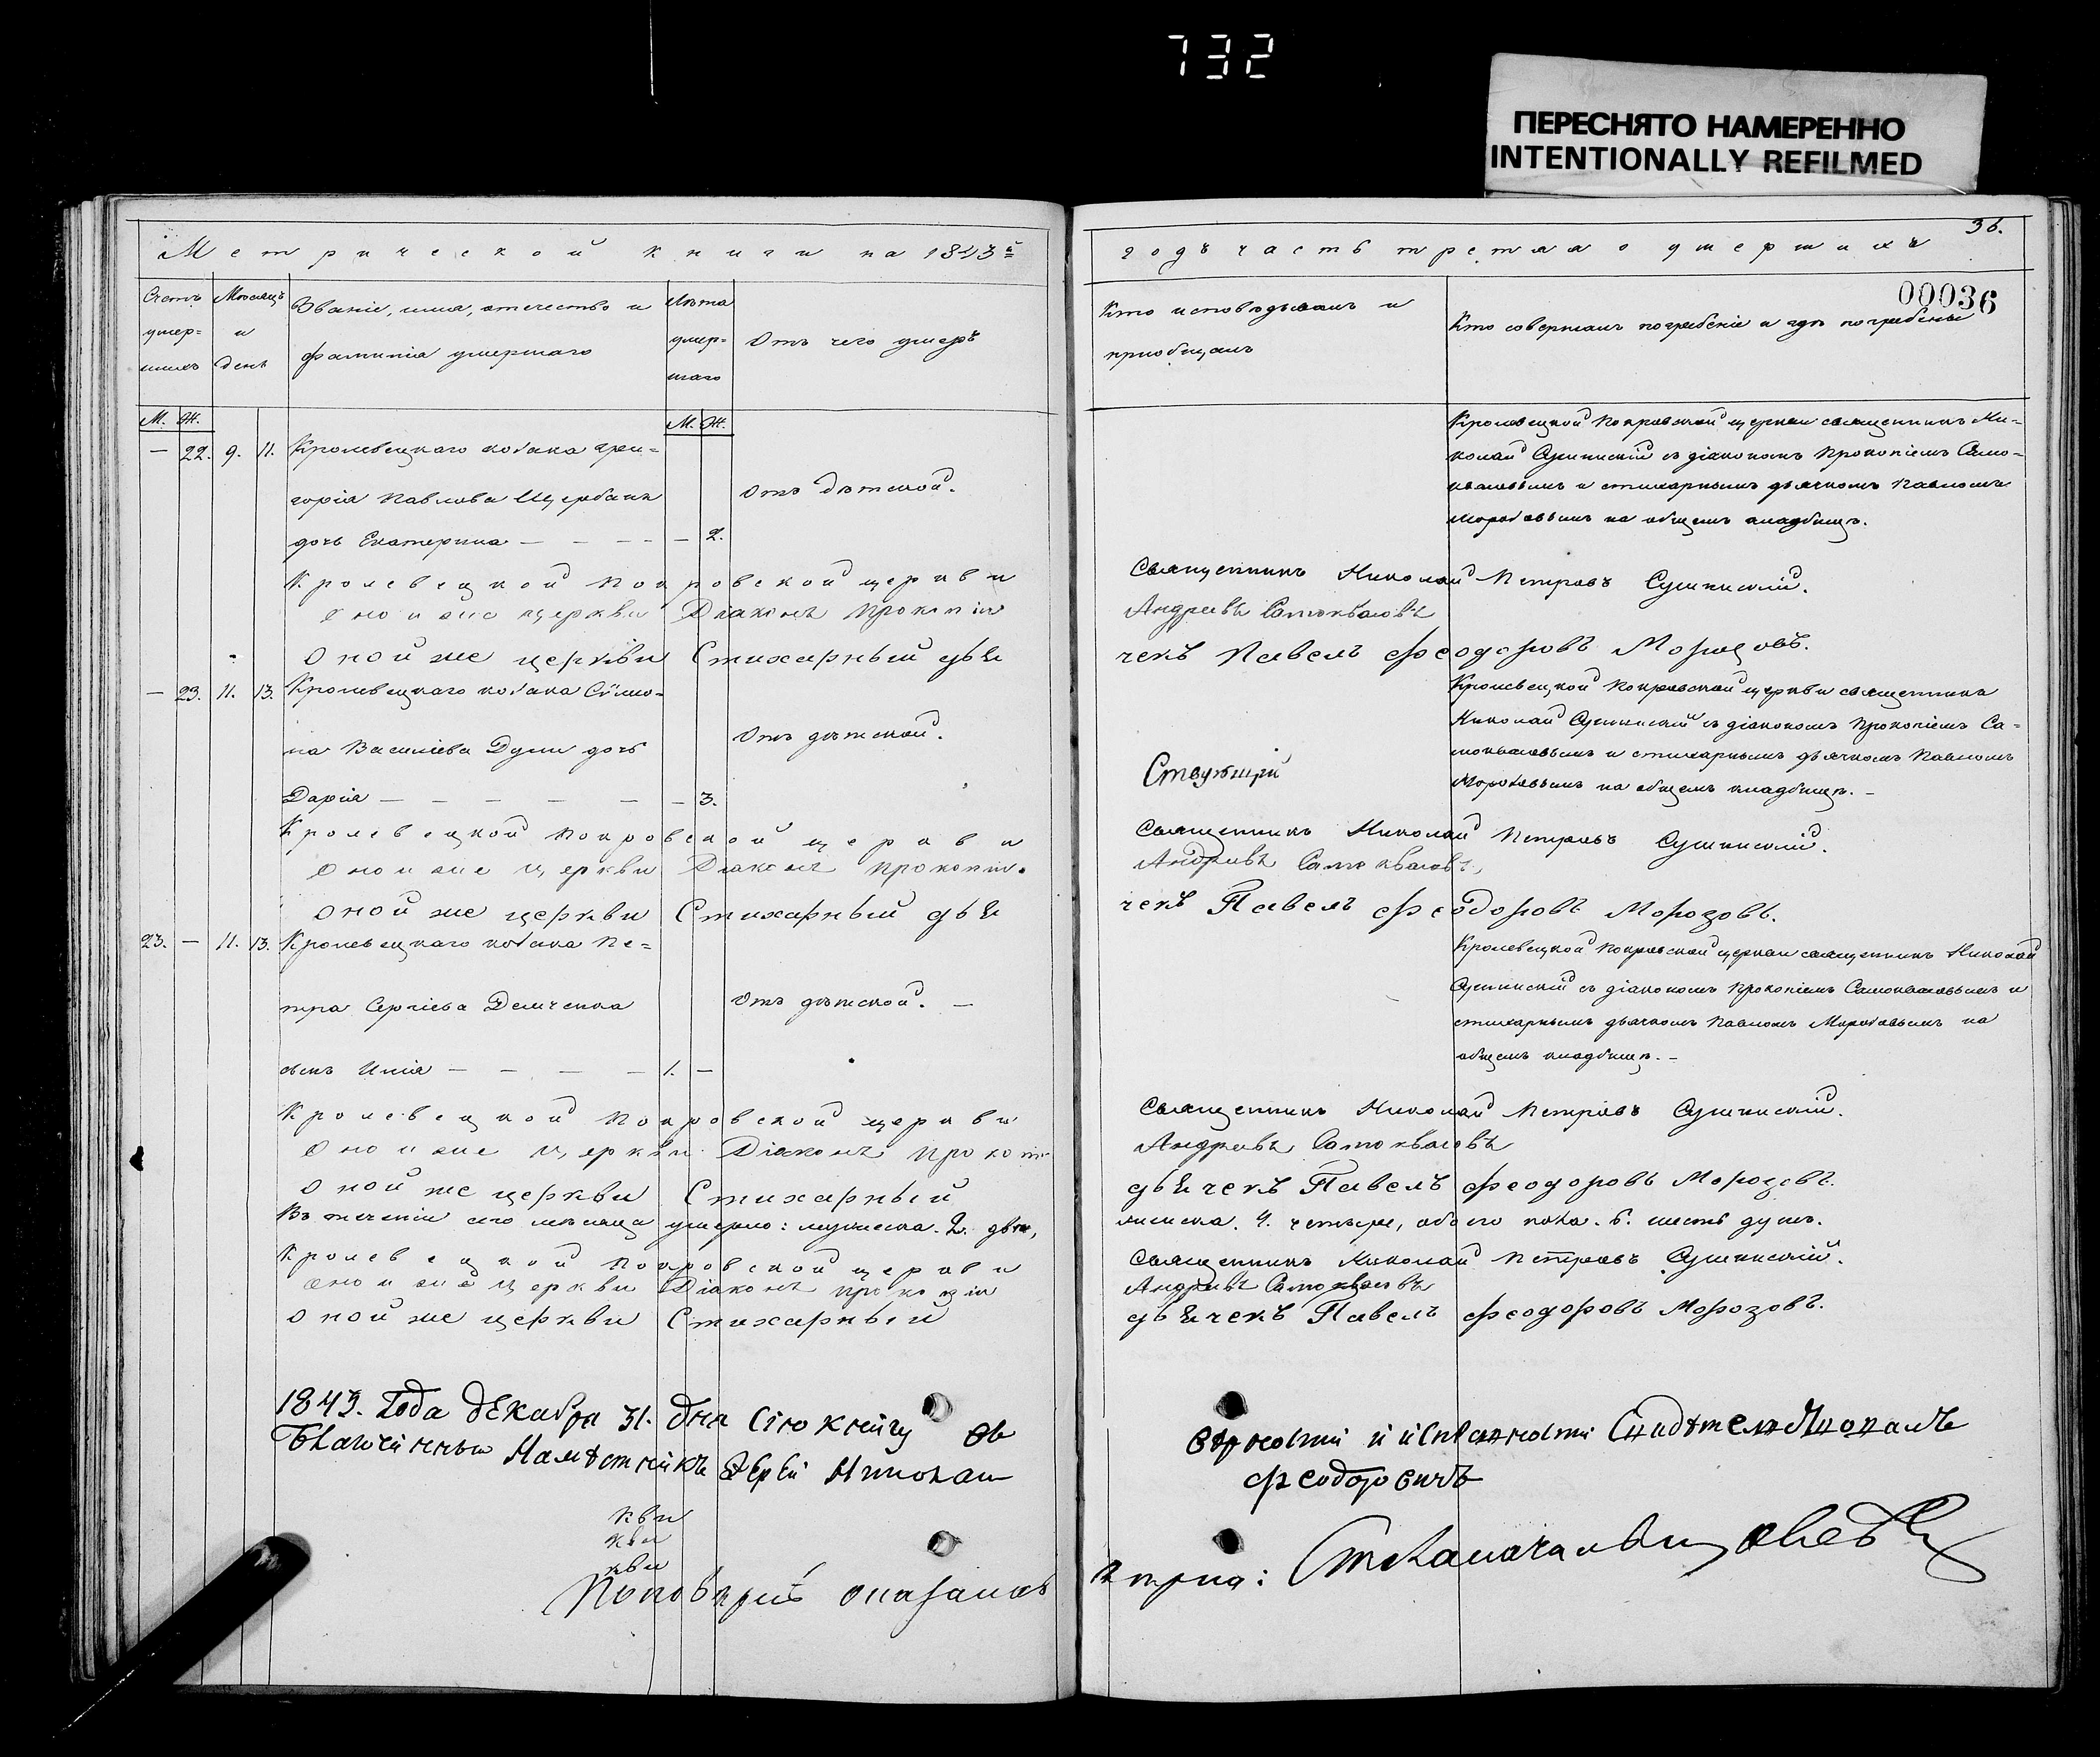 732
ПЕРЕСНЯТО НАМЕРЕННО
INTENTIONALLY REFILMED
Метрической книги на 1843й
Счетъ умер=шихъ
Мѣсяцъ и день
Званіе, имя, отечество и фамилія умершаго
Лѣта умер=шаго
Отъ чего умеръ
М. Ж.
М. Ж.
— 22. 9. 11. Кролевецкаго козака Гри=
горія Павлова Щербака
Отъ дѣтской.
дочь Екатерина — — — — — 2.
Кролевецкой Покровской церкви
оной же церкви Діаконъ Прокопій
оной же церкви Стихарный дьяі
— 23. 11. 13. Кролевецкаго козака Сѵмо=
на Василіева Думи дочь
Отъ дѣтской.
Дарія — — — — — — 3.
Кролевецкой Покровской церкви
оной же церкви Діаконъ Прокопій
оной же церкви Стихарный дья
23. — 11. 13. Кролевецкаго козака Пе=
тра Сергіева Демченка
Отъ дѣтской. —
сынъ Илія — — — — 1. —
Кролевецкой Покровской церкви
оной же церкви Діаконъ Прокопій
оной же церкви Стихарный
Въ теченіи сего мѣсяца умерло: мужеска. 2. два,
Кролевецкой Покровской церкви
оной же церкви Діаконъ Прокопій
оной же церкви Стихарный
1843. Года декабря 31. дня Сію книгу
Благочинный Намѣстникъ Іерей Николай
кви
кви
кви
36.
годъ часть третья о умершихъ
00036
Кто исповѣдывалъ и пріобщалъ
Кто совершалъ погребеніе и гдѣ погребены
Кролевецкой Покровской церкви священникъ Ни=
колай Сушинскій съ діакономъ Прокопіемъ Само=
кваловымъ и стихарнымъ дьячкомъ Павломъ
Морозовымъ на общемъ кладбищѣ.
Священникъ Николай Петровъ Сушинскій.
Андреевъ Самокваловъ
чекъ Павелъ Феодоровъ Морозовъ.
Кролевецкой Покровской церкви священникъ
Николай Сушинскій съ діакономъ Прокопіемъ Са=
мокваловымъ и стихарнымъ дьячкомъ Павломъ
Морозовымъ на общемъ кладбищѣ. —
Священникъ Николай Петровъ Сушинскій.
Андреевъ Самокваловъ
чекъ Павелъ Феодоровъ Морозовъ.
Кролевецкой Покровской церкви священникъ Николай
Сушинскій съ діакономъ Прокопіемъ Самокваловымъ и
стихарнымъ дьячкомъ Павломъ Морозовымъ на
общемъ кладбищѣ. —
Священникъ Николай Петровъ Сушинскій.
Андреевъ Самокваловъ
дьячекъ Павелъ Феодоровъ Морозовъ.
женска. 4. четыре, обоего пола. 6. шесть душъ.
Священникъ Николай Петровъ Сушинскій.
Андреевъ Самокваловъ
дьячекъ Павелъ Феодоровъ Морозовъ.
Феодоровичъ